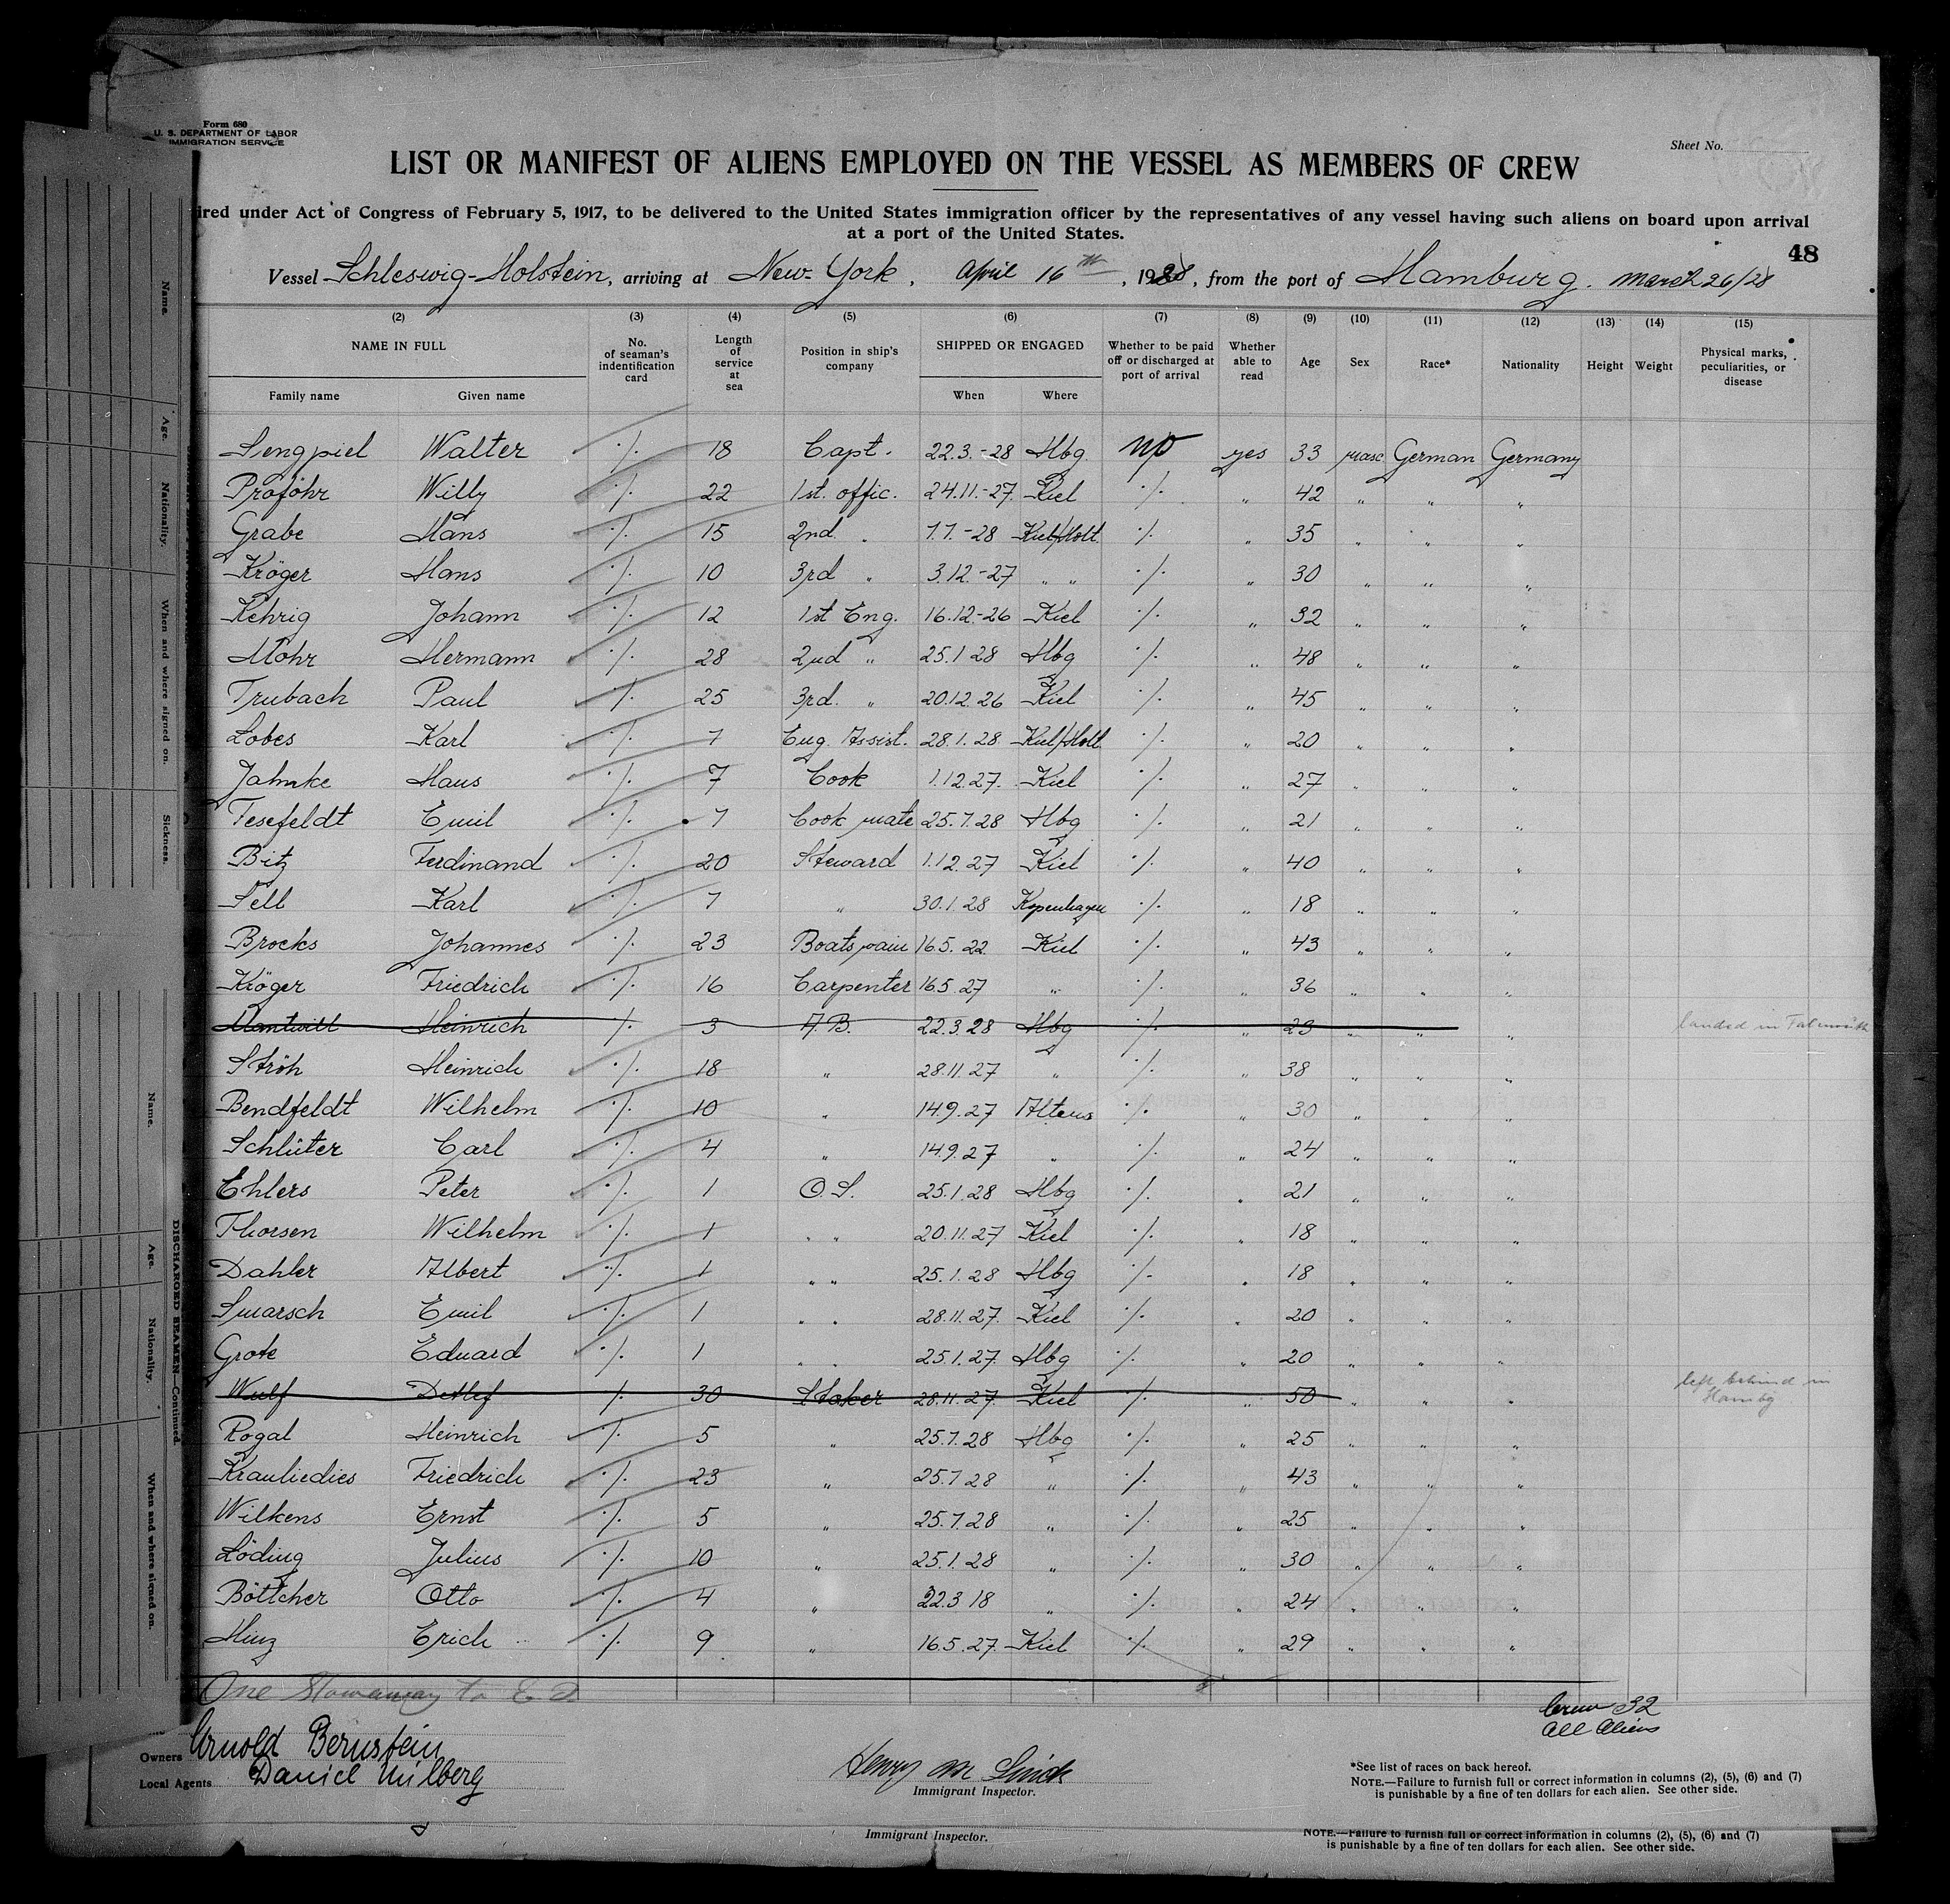 Form 680
U. S. DEPARTMENT OF LABOR
IMMIGRATION SERVICE
Sheet No.
LIST OR MANIFEST OF ALIENS EMPLOYED ON THE VESSEL AS MEMBERS OF CREW
ired under Act of Congress of February 5, 1917, to be delivered to the United States immigration officer by the representatives of any vessel having such aliens on board upon arrival
at a port of the United States.
48
Vessel Schleswig-Holstein, arriving at New-York, April 16th, 1928, from the port of Hamburg. March 26/28
(2) (3) (4) (5) (6) (7) (8) (9) (10) (11) (12) (13) (14) (15)
NAME IN FULL No. of seaman's indentification card Length of service at sea Position in ship's company SHIPPED OR ENGAGED Whether to be paid off or discharged at port of arrival Whether able to read Age Sex Race* Nationality Height Weight Physical marks, peculiarities, or disease
Family name Given name When Where
Sengpiel Walter ·/. 18 Capt. 22.3.-28 Hbg. no yes 33 masc German Germany
Proföhr Willy ·/. 22 1st. offic. 24.11.-27. Kiel ·/. " 42 " " "
Grabe Hans ·/. 15 2nd. " 7.1.-28 Kiel/Holt. ·/. " 35 " " "
Kröger Hans ·/. 10 3rd " 3.12.-27 " " ·/. " 30 " " "
Kehrig Johann ·/. 12 1st Eng. 16.12-26 Kiel ·/. " 32 " " "
Mohr Hermann ·/. 28 2nd " 25.1 28 Hbg ·/. " 48 " " "
Trubach Paul ·/. 25 3rd. " 20.12.26 Kiel ·/. " 45 " " "
Lobes Karl ·/. 7 Eng. Assist. 28.1.28. Kiel/Holt ·/. " 20 " " "
Jahnke Hans ·/. 7 Cook 1.12.27. Kiel ·/. " 27 " " "
Tesefeldt Emil ·/. 7 Cook mate 25.1.28 Hbg ·/. " 21 " " "
Bitz Ferdinand ·/. 20 Steward 1.12.27 Kiel ·/. " 40 " " "
Sell Karl ·/. 7 " 30.1.28 Kopenhagen ·/. " 18 " " "
Brocks Johannes ·/. 23 Boatswain 16.5.22 Kiel ·/. " 43 " " "
Kröger Friedrich ·/. 16 Carpenter 16.5.27 " ·/. " 36 " " "
Mantwill Heinrich ·/. 3 A.B. 22.3.28 Hbg ·/. " 23 " " " landed in Falmouth
Ströh Heinrich ·/. 18 " 28.11.27 " ·/. " 38 " " "
Bendfeldt Wilhelm ·/. 10 " 14.9.27 ·/. " 30 " " "
Schlüter Carl ·/. 4 " 14.9.27 " ·/. " 24 " " "
Ehlers Peter ·/. 1 O.S. 25.1.28 Hbg ·/. " 21 " " "
Thorsen Wilhelm ·/. 1 " " 20.11.27 Kiel ·/. " 18 " " "
Dahler Albert ·/. 1 " " 25.1.28 Hbg ·/. " 18 " " "
Smarsch Emil ·/. 1 " " 28.11.27. Kiel ·/. " 20 " " "
Grote Eduard ·/. 1 " " 25.1.27. Hbg ·/. " 20 " " "
Wulf Detlef ·/. 30 Stoker 28.11.27. Kiel ·/. " 50 " " " left behind in
Hambg
Rogal Heinrich ·/. 5 " 25.1.28 Hbg ·/. " 25 " " "
Krauliedies Friedrich ·/. 23 " 25.1 28 " ·/. " 43 " " "
Wilkens Ernst ·/. 5 " 25.1.28 " ·/. " 25 " " "
Löding Julius ·/. 10 " 25.1.28 " ·/. " 30 " " "
Böttcher Otto ·/. 4 " 22.3 18 " ·/. " 24 " " "
Hinz Erich ·/. 9 " 16.5.27. Kiel ·/. " 29 " " "
One Stowaway to
Crew 32
All Aliens
Owners Arnold Bernstein
Local Agents Daniel Milberg
Henry
Immigrant Inspector.
*See list of races on back hereof.
NOTE.—Failure to furnish full or correct information in columns (2), (5), (6) and (7)
is punishable by a fine of ten dollars for each alien. See other side.
Immigrant Inspector.
NOTE.—Failure to furnish full or correct information in columns (2), (5), (6) and (7)
is punishable by a fine of ten dollars for each alien. See other side.
Name.
Age.
Nationality.
When and where signed on.
Sickness.
DISCHARGED SEAMEN—Continued
Name.
Age.
Nationality.
When and where signed on.